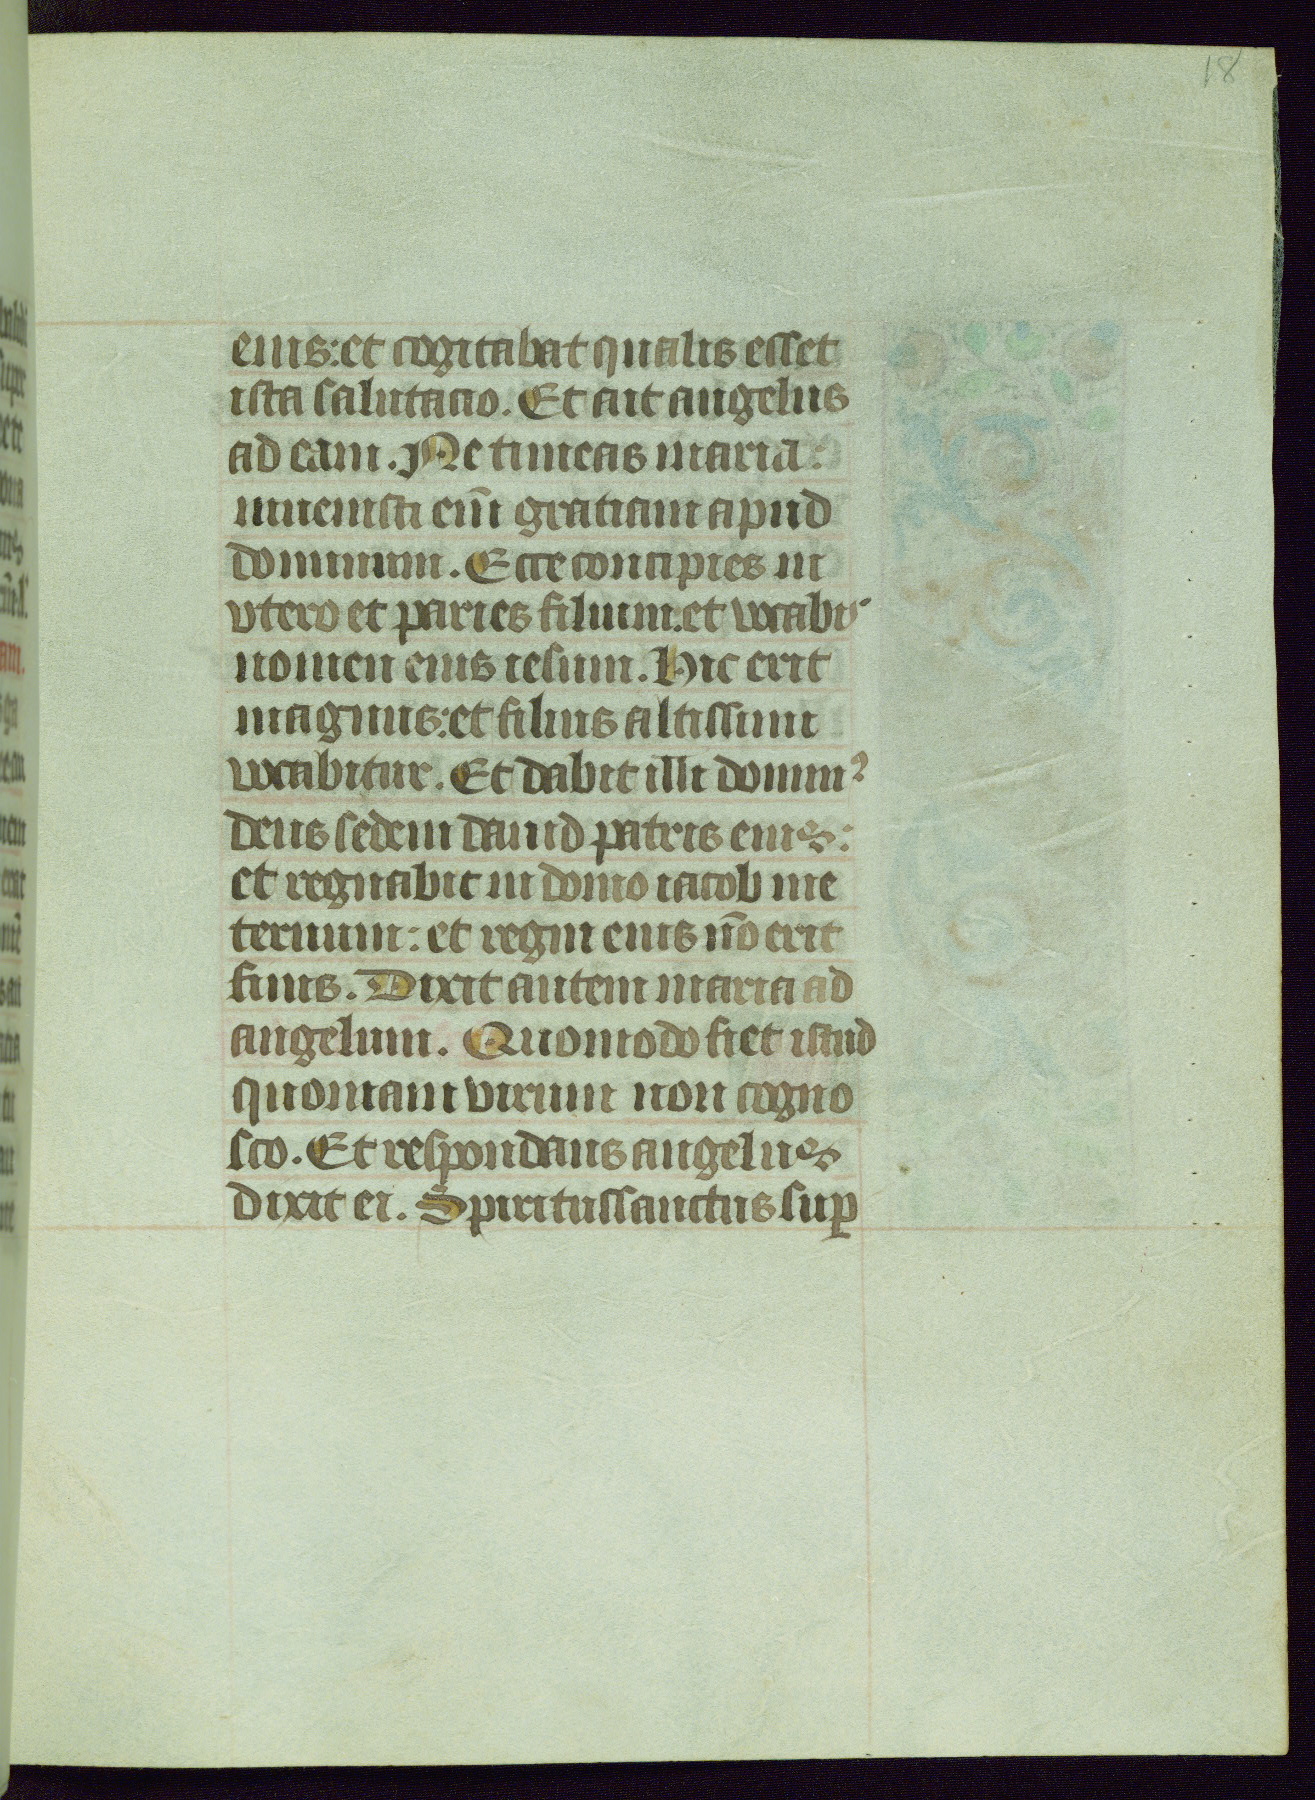 18
eius: et cogitabat qualis esset
ista salutacio. Et ait angelus
ad eam. Ne timeas maria:
inuenisti eni̅ gratiam apud
dominum. Ecce concipies in
vtero et paries filium. et vocabi᷒
nomen eius iesum. Hic erit
magnus: et filius altissimi
vocabitur. Et dabit illi domin᷒
deus sedem dauid patris eius:
et regnabit in domo iacob in e
ternum: et regni eius no̅ erit
finis. Dixit autem maria ad
angelum. Quomodo fiet istud
quoniam virum non cogno
sco. Et respondens angelus
dixit ei. Spiritussanctus suꝑ